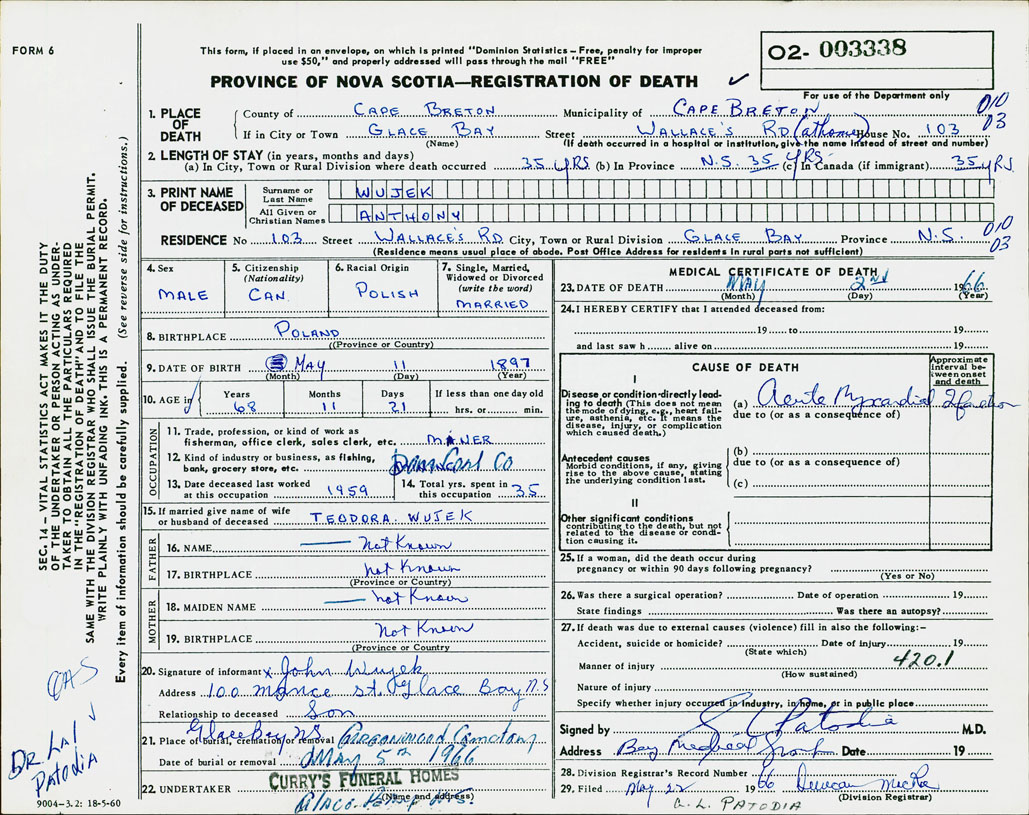 FORM 6
This form, if placed in an envelope, on which is printed "Dominion Statistics – Free, penalty for improper
use $50," and properly addressed will pass through the mail "FREE"
PROVINCE OF NOVA SCOTIA—REGISTRATION OF DEATH
O2- 003338
For use of the Department only
1. PLACE OF DEATH
County of CAPE BRETON Municipality of CAPE BRETON 010
If in City or Town GLACE BAY Street WALLACE'S RD (at home) House No. 103 03
(Name) (If death occurred in a hospital or institution, give the name instead of street and number)
2. LENGTH OF STAY (in years, months and days)
(a) In City, Town or Rural Division where death occurred 35 YRS (b) In Province N.S. 35 YRS (c) In Canada (if immigrant) 35 YRS.
3. PRINT NAME OF DECEASED
Surname or Last Name WUJEK
All Given or Christian Names ANTHONY
RESIDENCE No 103 Street WALLACE'S RD City, Town or Rural Division GLACE BAY Province N.S. 010 03
(Residence means usual place of abode. Post Office Address for residents in rural parts not sufficient)
4. Sex
MALE
5. Citizenship
(Nationality)
CAN.
6. Racial Origin
POLISH
7. Single, Married,
Widowed or Divorced
(write the word)
MARRIED
8. BIRTHPLACE POLAND
(Province or Country)
9. DATE OF BIRTH MAY 11 1897
(Month) (Day) (Year)
10. AGE in
Years Months Days If less than one day old
68 11 21 hrs. or min.
OCCUPATION
11. Trade, profession, or kind of work as
fisherman, office clerk, sales clerk, etc. MINER
12. Kind of industry or business, as fishing,
bank, grocery store, etc. Dom Coal Co
13. Date deceased last worked
at this occupation 1959
14. Total yrs. spent in
this occupation 35
15. If married give name of wife
or husband of deceased TEODORA. WUJEK
FATHER
16. NAME Not Known
17. BIRTHPLACE Not Known
(Province or Country)
MOTHER
18. MAIDEN NAME Not Known
19. BIRTHPLACE Not Known
(Province or Country)
20. Signature of informant x John Wujek
Address 100 Mance St. Glace Bay N.S
Relationship to deceased Son
21. Place of burial, cremation or removal Glace Bay NS Greenwood Cemetary
Date of burial or removal MAY 5th 1966
22. UNDERTAKER CURRY'S FUNERAL HOMES
(Name and address)
Glace Bay N.S.
MEDICAL CERTIFICATE OF DEATH
23. DATE OF DEATH MAY 2nd 1966
(Month) (Day) (Year)
24. I HEREBY CERTIFY that I attended deceased from:
19 to 19
and last saw h alive on 19
CAUSE OF DEATH
Approximate
interval be-
tween onset
and death
I
Disease or condition directly lead-
ing to death (This does not mean
the mode of dying, e.g., heart fail-
ure, asthenia, etc. It means the
disease, injury, or complication
which caused death.)
(a) Acute Myocardial Infarction
due to (or as a consequence of)
Antecedent causes
Morbid conditions, if any, giving
rise to the above cause, stating
the underlying condition last.
(b)
due to (or as a consequence of)
(c)
II
Other significant conditions
contributing to the death, but not
related to the disease or condi-
tion causing it.
25. If a woman, did the death occur during
pregnancy or within 90 days following pregnancy?
(Yes or No)
26. Was there a surgical operation? Date of operation 19
State findings Was there an autopsy?
27. If death was due to external causes (violence) fill in also the following:–
Accident, suicide or homicide? Date of injury 19
(State which)
420.1
Manner of injury
(How sustained)
Nature of injury
Specify whether injury occurred in industry, in home, or in public place
Signed by Patodia M.D.
Address Bay Medical Group Date 19
28. Division Registrar's Record Number
29. Filed May 22 1966 Duncan
(Division Registrar)
G. L. PATODIA
SEC. 14 – VITAL STATISTICS ACT MAKES IT THE DUTY
OF THE UNDERTAKER OR PERSON ACTING AS UNDER-
TAKER TO OBTAIN ALL THE PARTICULARS REQUIRED
IN THE "REGISTRATION OF DEATH" AND TO FILE THE
SAME WITH THE DIVISION REGISTRAR WHO SHALL ISSUE THE BURIAL PERMIT.
WRITE PLAINLY WITH UNFADING INK. THIS IS A PERMANENT RECORD.
Every item of information should be carefully supplied. (See reverse side for instructions.)
DR LAL
PATODIA
9004–3.2: 18-5-60